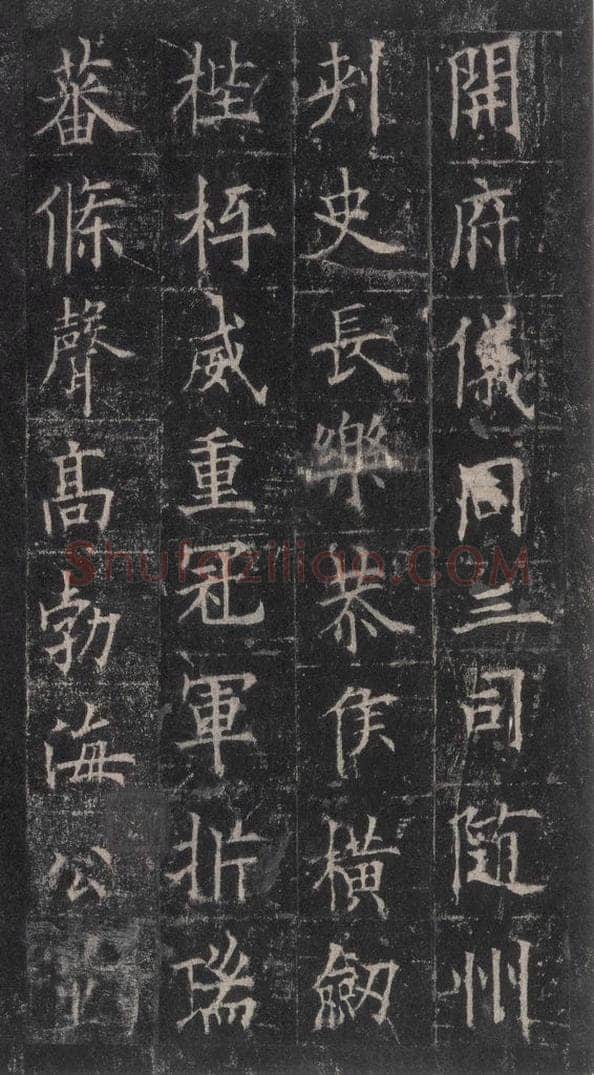 開府儀同三司隨州
刾史長樂恭侯橫劒
梐枑威重冠軍析瑞
蕃條聲高勃海公
Shufaziliao.COM